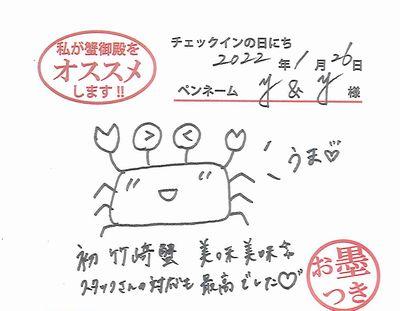 私が蟹御殿を
オススメ
します!!
チェックインの日にち
2022年1月26日
ペンネーム y & y 様
うま♡
初 竹崎蟹 美味美味☆
スタッフさんの対応も 最高でした♡
お墨
つき